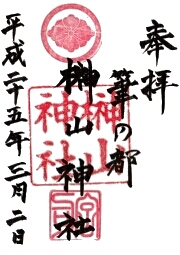 奉拝
筆の都
榊山神社
榊山
神社
平成二十五年三月二日